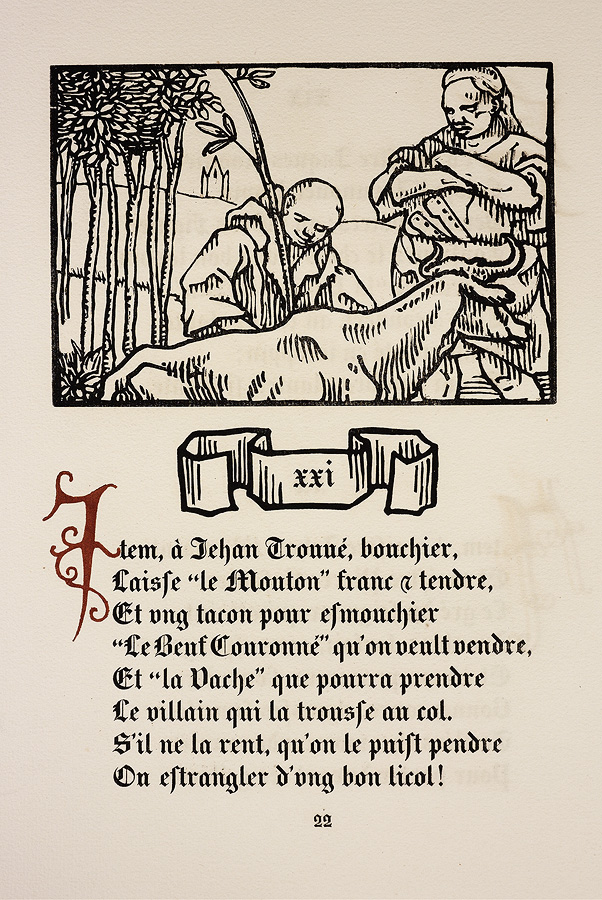 xxi
Item, à Jehan Trouué, bouchier,
Laisse “le Mouton” franc & tendre,
Et vng tacon pour esmouchier
“Le Beuf Couronné” qu'on veult vendre,
Et “la Vache” que pourra prendre
Le villain qui la trousse au col.
S'il ne la rent, qu'on le puist pendre
Ou estrangler d'vng bon licol!
22